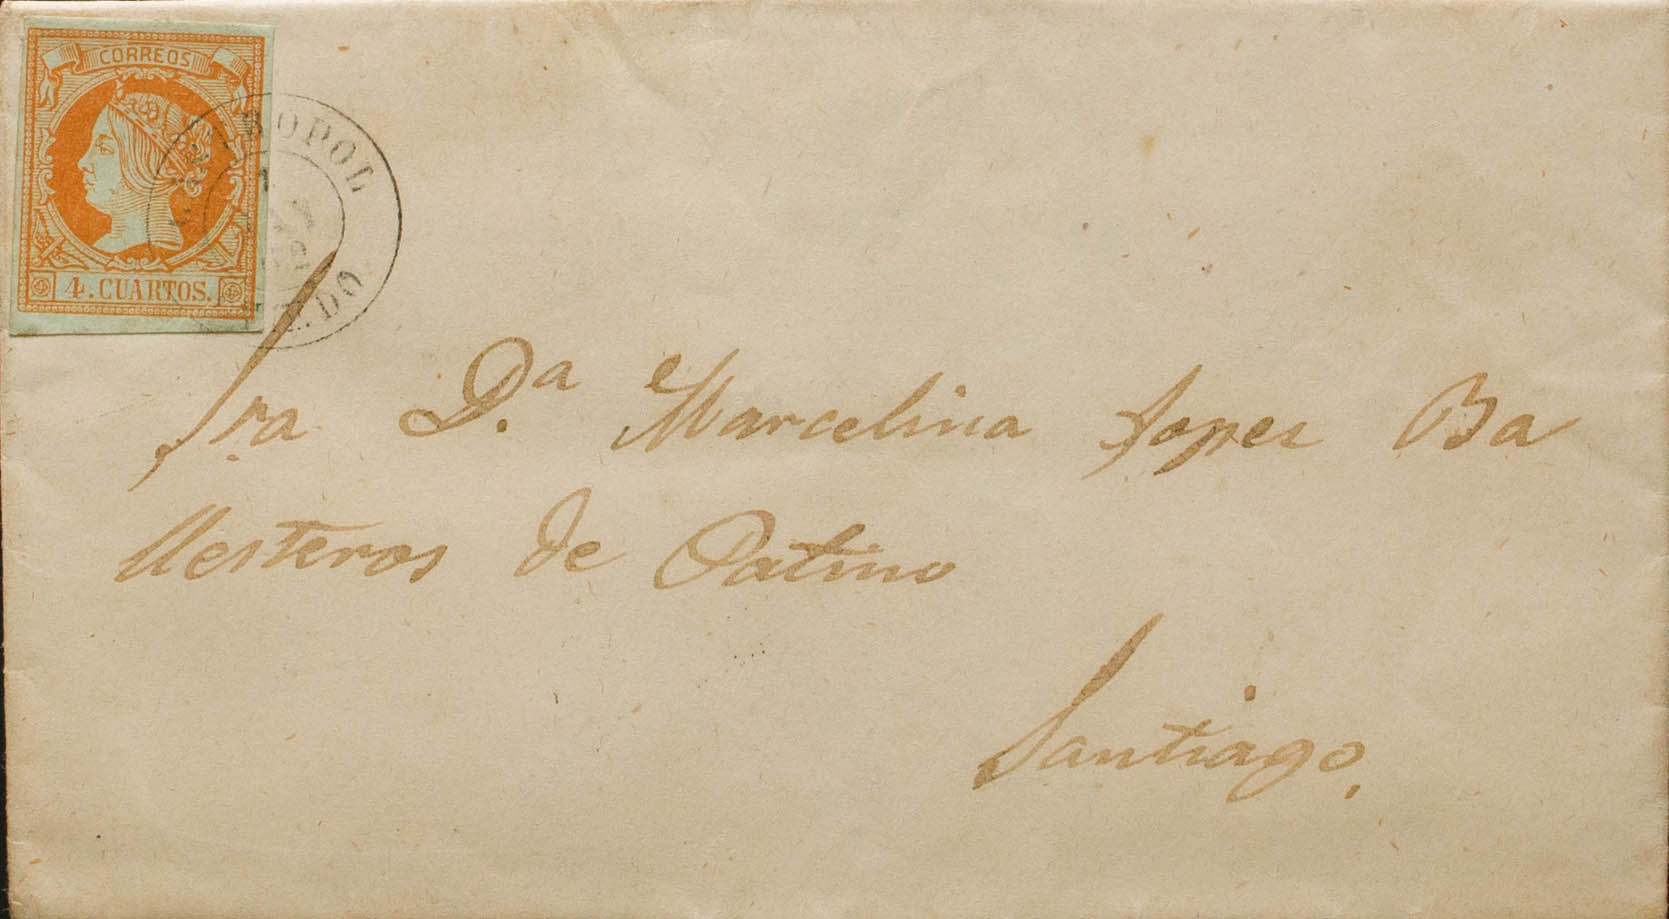 CORREOS
4. CUARTOS.
Sra D.ª Marcelina Lopez Ba
llesteros de Patino
Santiago.